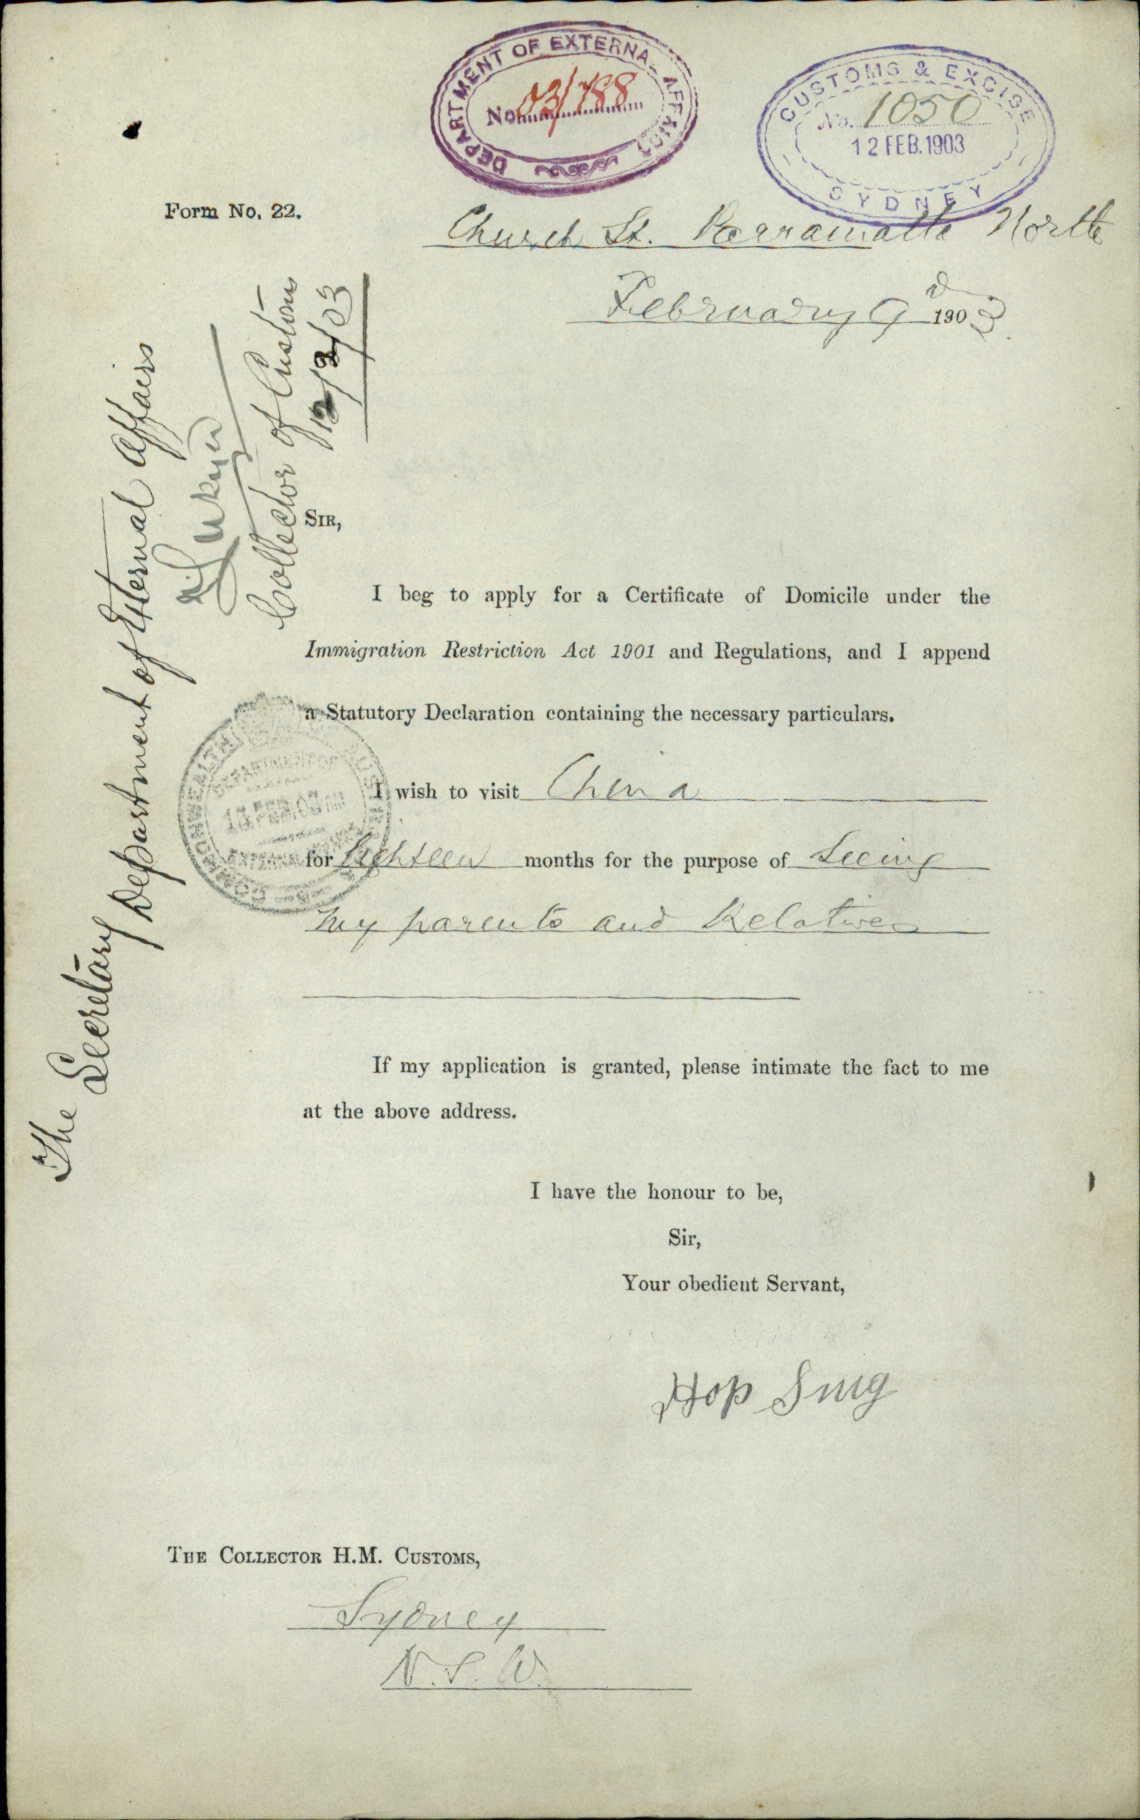 DEPARTMENT OF EXTERNAL AFFAIRS
No. 03/788
CUSTOMS & EXCISE
No. 1050
12 FEB. 1903
SYDNEY
Form No. 22.
Church St. Parramatta North
February 9 1903
The Secretary Department of External Affairs
Collector of Customs
12/2/03
SIR,
I beg to apply for a Certificate of Domicile under the
Immigration Restriction Act 1901 and Regulations, and I append
a Statutory Declaration containing the necessary particulars.
I wish to visit China
for Eighteen months for the purpose of Seeing
my parents and Relatives
COMMONWEALTH
DEPARTMENT OF
EXTERNAL
If my application is granted, please intimate the fact to me
at the above address.
I have the honour to be,
Sir,
Your obedient Servant,
Hop Sing
THE COLLECTOR H.M. CUSTOMS,
Sydney
N.S.W.